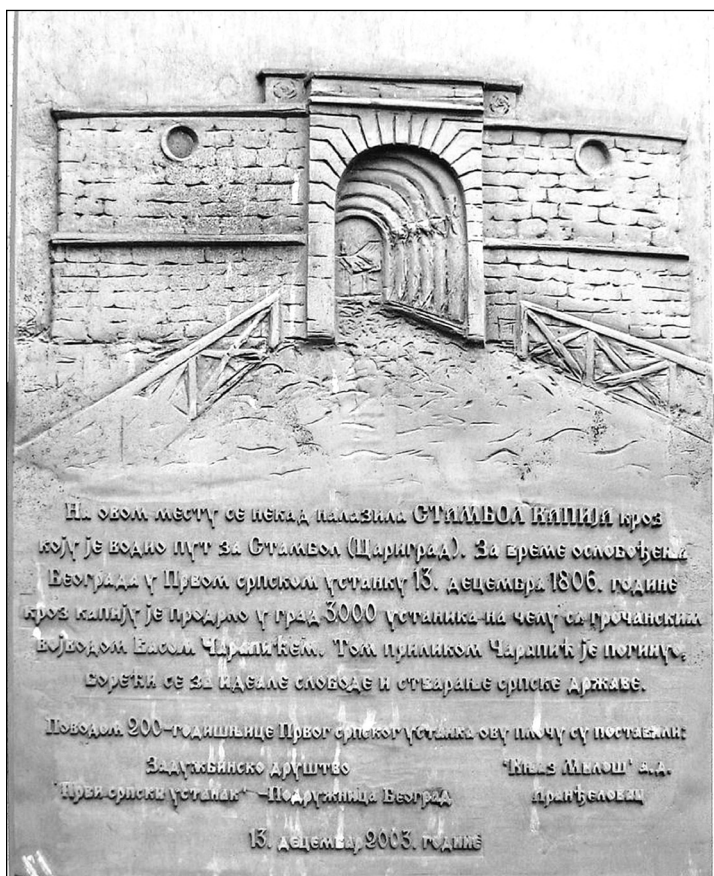 На овом месту се некад налазила СТАМБОЛ КАПИЈА кроз
коју је водио пут за Стамбол (Цариград). За време ослобођења
Београда у Првом српском устанку 13. децембра 1806. године
кроз капију је продрло у град 3.000 устаника на челу са грочанским
војводом Васом Чарапићем. Том приликом Чарапић је погинуо,
борећи се за идеале слободе и стварање српске државе.
Поводом 200-годишњице Првог српског устанка ову плочу су поставили:
Задужбинско друштво
"Први српски устанак" -Подружница Београд
"Књаз Милош" а.д.
Аранђеловац
13. децембар 2003. године